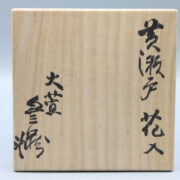 黄瀬戸 花入
大萱